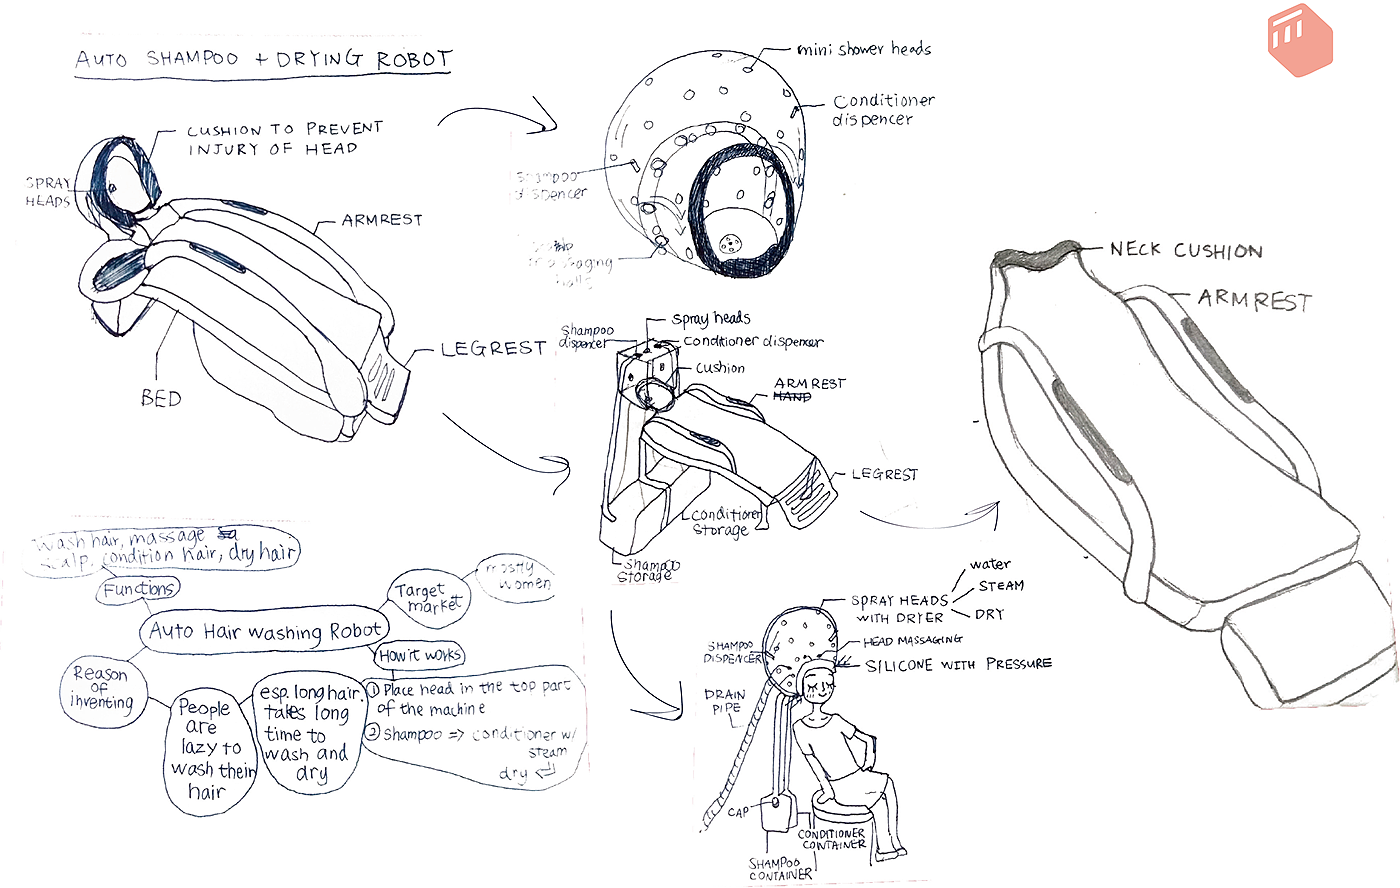 AUTO SHAMPOO + DRYING ROBOT
CUSHION TO PREVENT
INJURY OF HEAD
SPRAY
HEADS
ARMREST
LEGREST
BED
mini shower heads
Conditioner
dispencer
Shampoo
dispencer
massaging
balls
Shampoo
dispencer
spray heads
conditioner dispencer
cushion
ARMREST
HAND
LEGREST
Conditioner
Storage
Shampoo
Storage
NECK CUSHION
ARMREST
wash hair, massage
scalp, condition hair, dry hair
Functions
Target
market
mostly
women
Auto Hair washing Robot
How it works
Reason
of
inventing
People
are
lazy to
wash their
hair
esp. long hair
takes long
time to
wash and
dry
① Place head in the top part
of the machine
② Shampoo => conditioner w/
steam
dry <=
SPRAY HEADS
WITH DRYER
water
STEAM
DRY
SHAMPOO
DISPENCER
HEAD MASSAGING
SILICONE WITH PRESSURE
DRAIN
PIPE
CAP
CONDITIONER
CONTAINER
SHAMPOO
CONTAINER